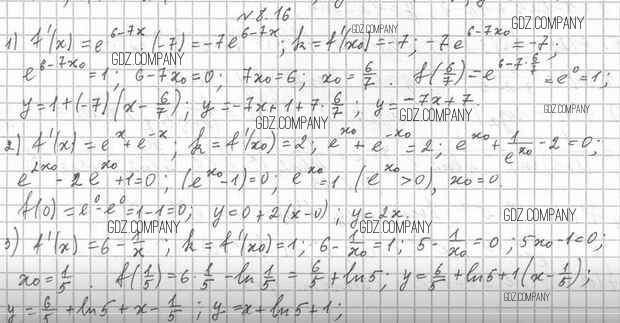 №8.16
1) f'(x)=e^{6-7x}·(-7)=-7e^{6-7x}; k=f'(x₀)=-7; -7e^{6-7x₀}=-7;
e^{6-7x₀}=1; 6-7x₀=0; 7x₀=6; x₀=6/7. f(6/7)=e^{6-7·6/7}=e⁰=1;
y=1+(-7)(x-6/7); y=-7x+1+7·6/7; y=-7x+7.
2) f'(x)=e^x+e^{-x}; k=f'(x₀)=2; e^{x₀}+e^{-x₀}=2; e^{x₀}+1/e^{x₀}-2=0;
e^{2x₀}-2e^{x₀}+1=0; (e^{x₀}-1)=0; e^{x₀}=1 (e^{x₀}>0), x₀=0.
f(0)=e⁰-e⁰=1-1=0; y=0+2(x-0); y=2x.
3) f'(x)=6-1/x; k=f'(x₀)=1; 6-1/x₀=1; 5-1/x₀=0; 5x₀-1=0;
x₀=1/5. f(1/5)=6·1/5-ln 1/5=6/5+ln5; y=6/5+ln5+1(x-1/5);
y=6/5+ln5+x-1/5; y=x+ln5+1;
GDZ.COMPANY
GDZ.COMPANY
GDZ.COMPANY
GDZ.COMPANY
GDZ.COMPANY
GDZ.COMPANY
GDZ.COMPANY
GDZ.COMPANY
GDZ.COMPANY
GDZ.COMPANY
GDZ.COMPANY